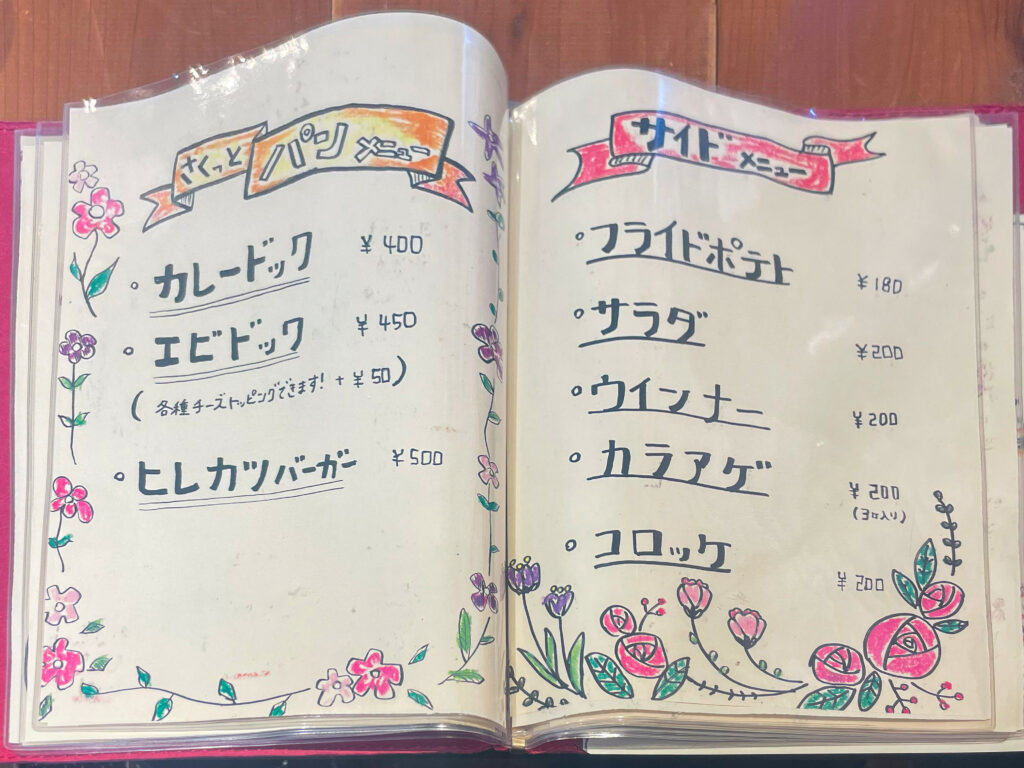 さくっと パン メニュー
・カレードック ¥400
・エビドック ¥450
(各種チーズトッピングできます! + ¥50)
・ヒレカツバーガー ¥500
サイド メニュー
・フライドポテト ¥180
・サラダ ¥200
・ウインナー ¥200
・カラアゲ ¥200
(3ヶ入り)
・コロッケ ¥200